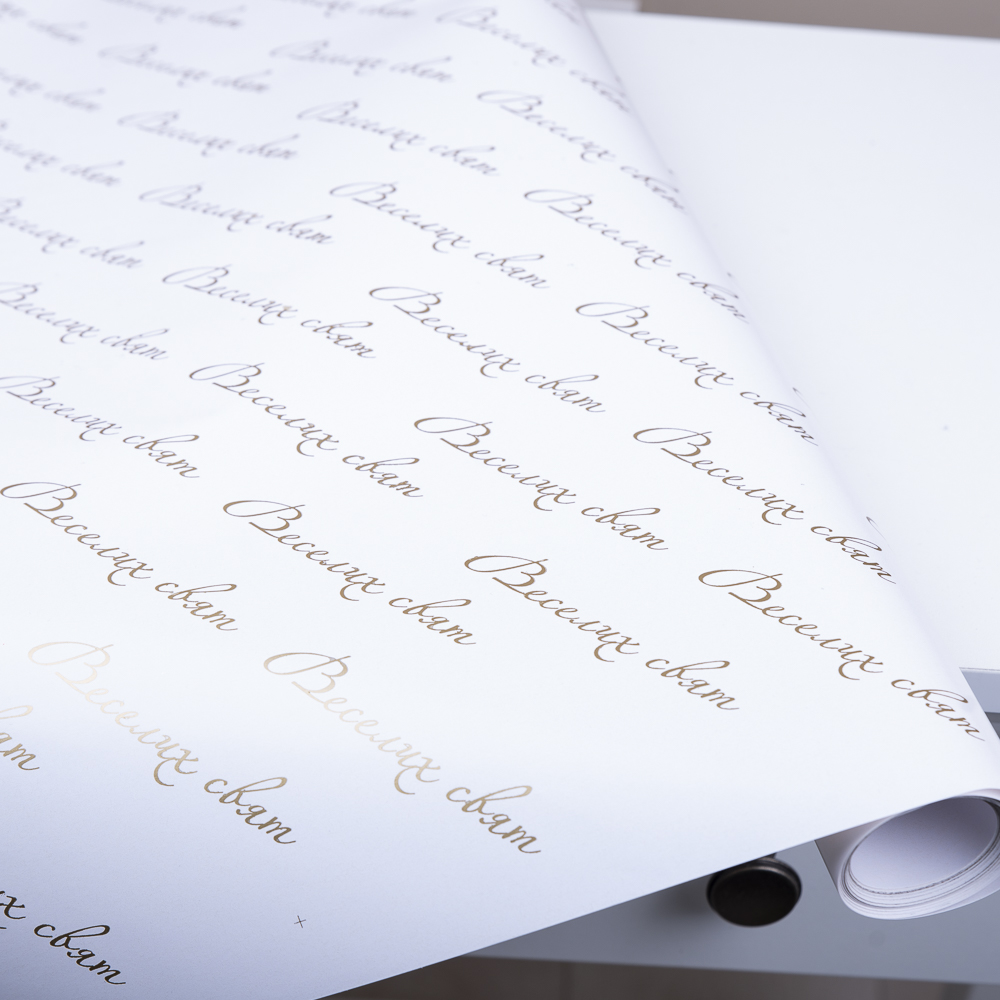 Веселих свят
Веселих свят
Веселих свят
Веселих свят
Веселих свят
Веселих свят
Веселих свят
Веселих свят
Веселих свят
Веселих свят
Веселих свят
Веселих свят
Веселих свят
Веселих свят
Веселих свят
Веселих свят
Веселих свят
Веселих свят
Веселих свят
Веселих свят
Веселих свят
Веселих свят
Веселих свят
вят
их свят